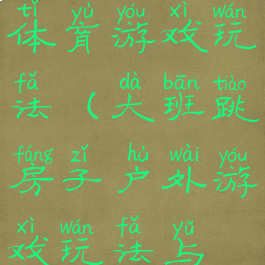 tǐ yù yóu xì wán
体育游戏玩
fǎ dà bān tiào
法（大班跳
fáng zǐ hù wài yóu
房子户外游
xì wán fǎ yǔ
戏玩法与